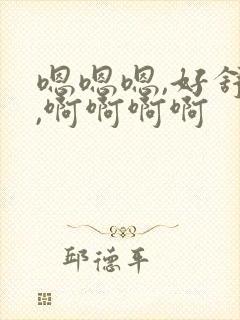 嗯嗯嗯,好舒
,啊啊啊啊
邱德平